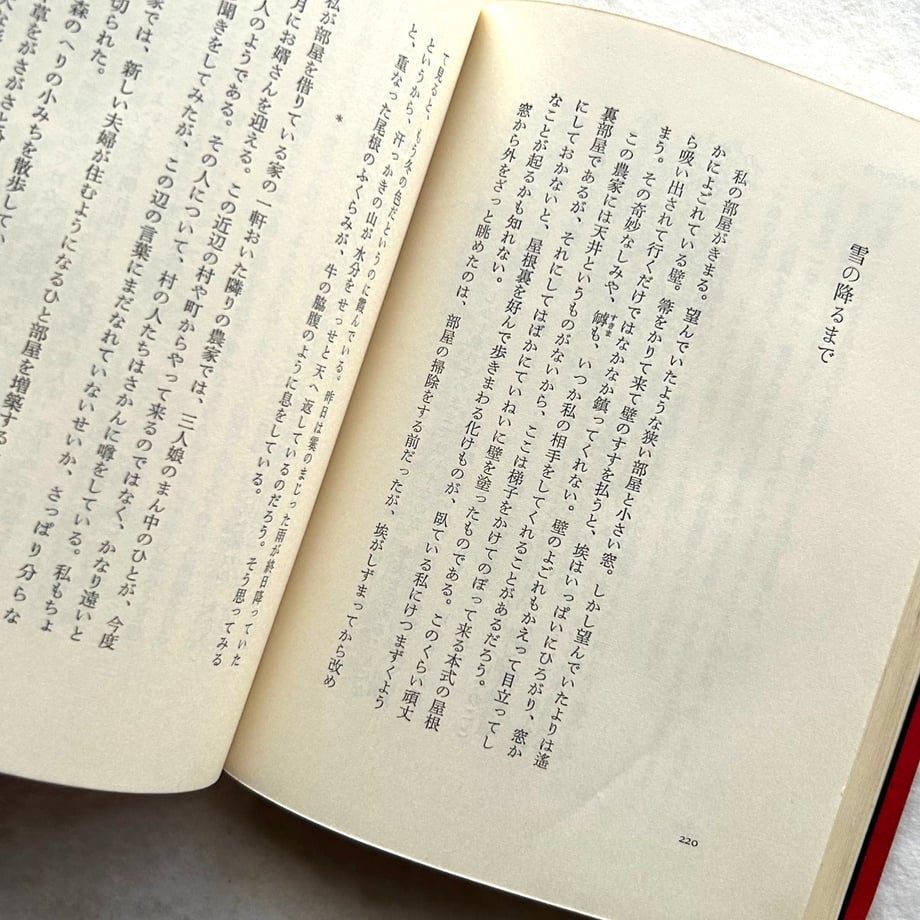 雪の降るまで
私の部屋がきまる。望んでいたような狭い部屋と小さい窓。しかし望んでいたよりは遙
かによごれている壁。箒をかりて来て壁のすすを払うと、埃はいっぱいにひろがり、窓か
ら吸い出されて行くだけではなかなか鎮ってくれない。壁のよごれもかえって目立ってし
まう。その奇妙なしみや、罅も、いつか私の相手をしてくれることがあるだろう。
すきま
この農家には天井というものがないから、ここは梯子をかけてのぼって来る本式の屋根
裏部屋であるが、それにしてはばかにていねいに壁を塗ったものである。このくらい頑丈
にしておかないと、屋根裏を好んで歩きまわる化けものが、臥ている私にけつまずくよう
なことが起るかも知れない。
窓から外をざっと眺めたのは、部屋の掃除をする前だったが、埃がしずまってから改め
220
て見ると、もう冬の色だというのに霞んでいる。昨日は霙のまじった雨が終日降っていた
というから、汗っかきの山が水分をせっせと天へ返しているのだろう。そう思ってみる
と、重なった尾根のふくらみが、牛の脇腹のように息をしている。
*
私が部屋を借りている家の一軒おいた隣りの農家では、三人娘のまん中のひとが、今度
月にお婿さんを迎える。この近辺の村や町からやって来るのではなく、かなり遠いと
人のようである。その人について、村の人たちはさかんに噂をしている。私もちょ
聞きをしてみたが、この辺の言葉にまだなれていないせいか、さっぱり分らな
家では、新しい夫婦が住むようになるひと部屋を増築する
切られた。
森のへりの小みちを散歩してい
草をがさがさと